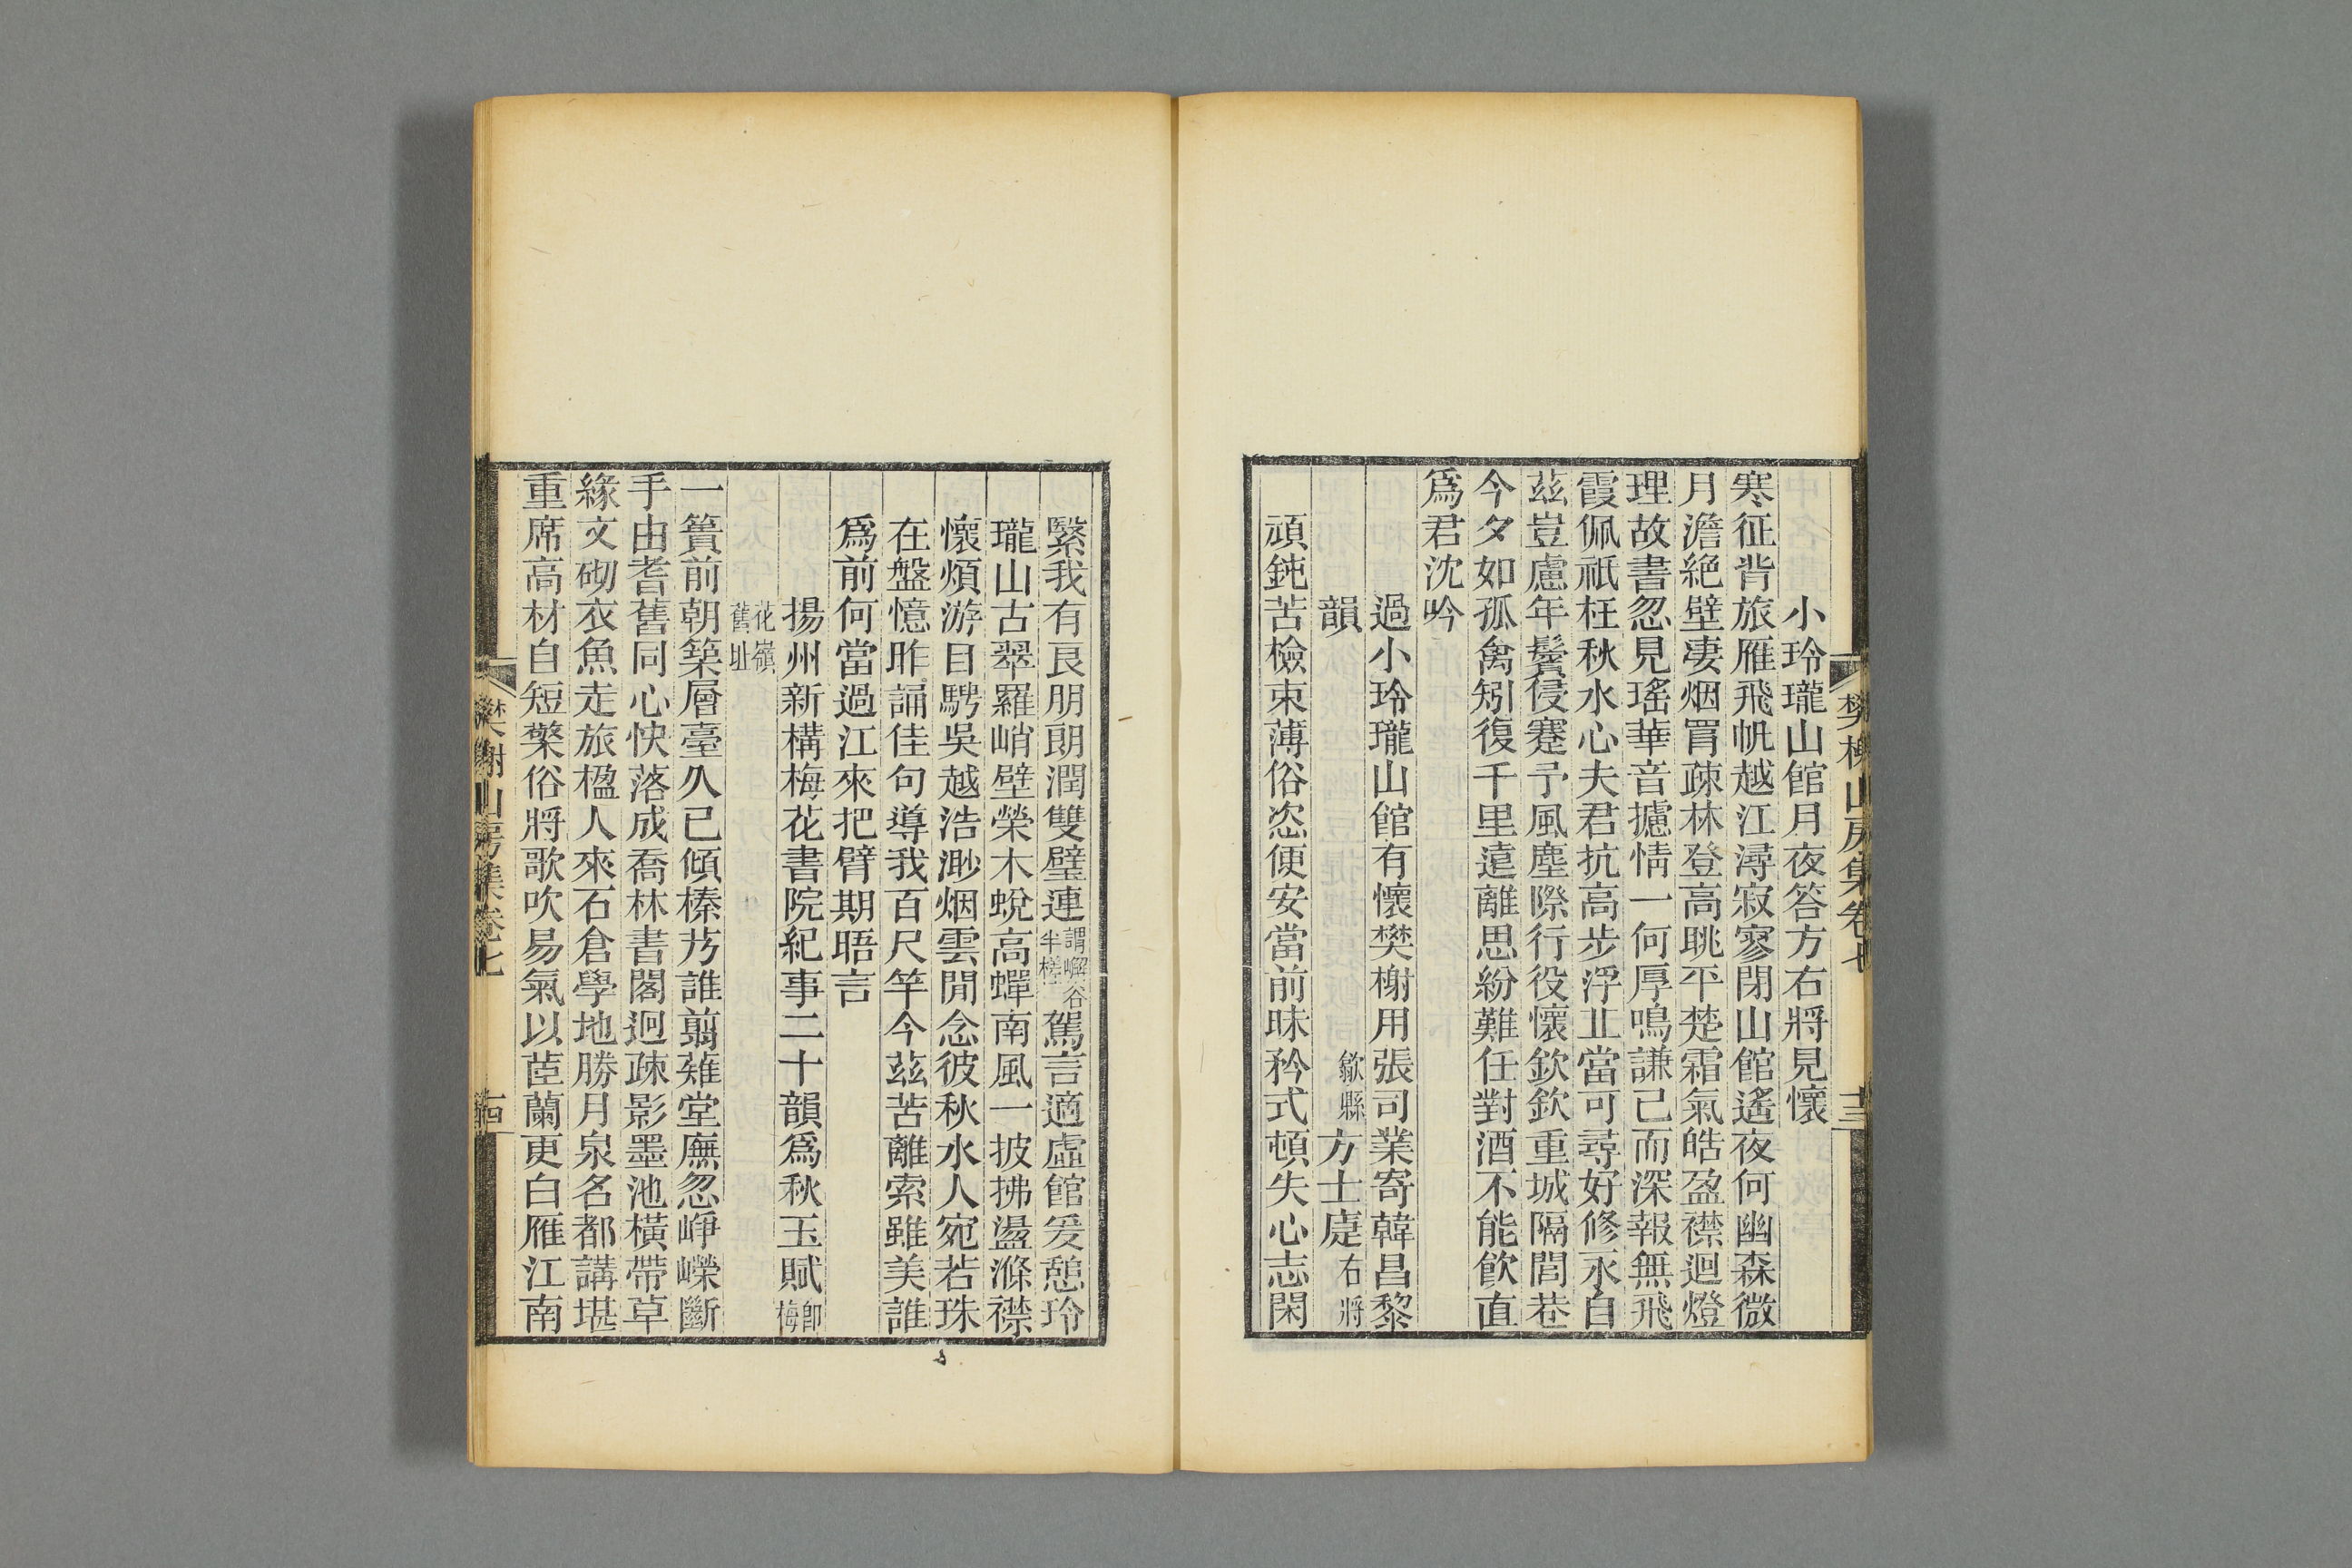 小玲瓏山館月夜答方右將見懷
寒征背旅雁飛帆越江潯寂寥閉山館遙夜何幽森微
月澹絶壁凄烟罥疎林登高眺平楚霜氣皓盈襟迴燈
理故書忽見瑤華音攄情一何厚鳴謙己而深報無飛
霞佩祇枉秋水心夫君抗高步浮丘當可尋好修永自
茲豈慮年鬢侵蹇予風塵際行役懷欽欽重城隔閭巷
今夕如孤禽矧復千里遠離思紛難任對酒不能飮直
爲君沈吟
過小玲瓏山館有懷樊榭用張司業寄韓昌黎
韻 歙縣方士㢈右將
頑鈍苦檢束薄俗恣便安當前昧矜式頓失心志閑
繄我有良朋朗潤雙璧連謂嶰谷半槎駕言適虛館爰憩玲
瓏山古翠羅峭壁榮木蛻高蟬南風一披拂盪滌襟
懷煩游目騁吳越浩渺烟雲閒念彼秋水人宛若珠
在盤憶昨誦佳句導我百尺竿今茲苦離索雖美誰
爲前何當過江來把臂期晤言
揚州新構梅花書院紀事二十韻爲秋玉賦卽梅
花嶺舊址
一簣前朝築層臺久已傾榛艿誰翦薙堂廡忽崢嶸斷
手由耆舊同心快落成喬林書閣迥疎影墨池橫帶草
緣文砌衣魚走旅楹人來石倉學地勝月泉名都講堪
重席高材自短檠俗將歌吹易氣以茝蘭更白雁江南
樊榭山房集卷七
十三
樊榭山房集卷七
十四